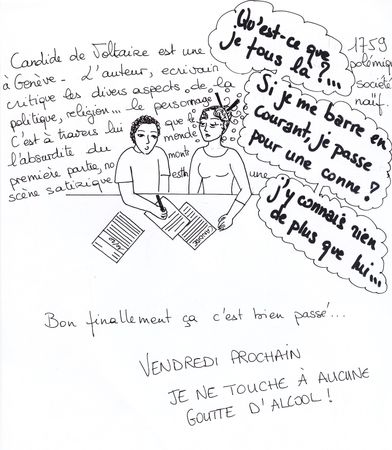 Candide de Voltaire est une
à Genève. L'auteur, ecrivain
critique les divers aspects de la
politique, religion... le personnage
C'est à travers lui que le
l'absurdité du monde
première partie, no mont
scène satirique esth une
1759
polémiq
société
naïf
Qu'est-ce que
je fous là ?...
Si je me barre en
courant, je passe
pour une conne ?
j'y connais rien
de plus que lui...
Bon finallement ça c'est bien passé...
VENDREDI PROCHAIN
JE NE TOUCHE À AUCUNE
GOUTTE D'ALCOOL !